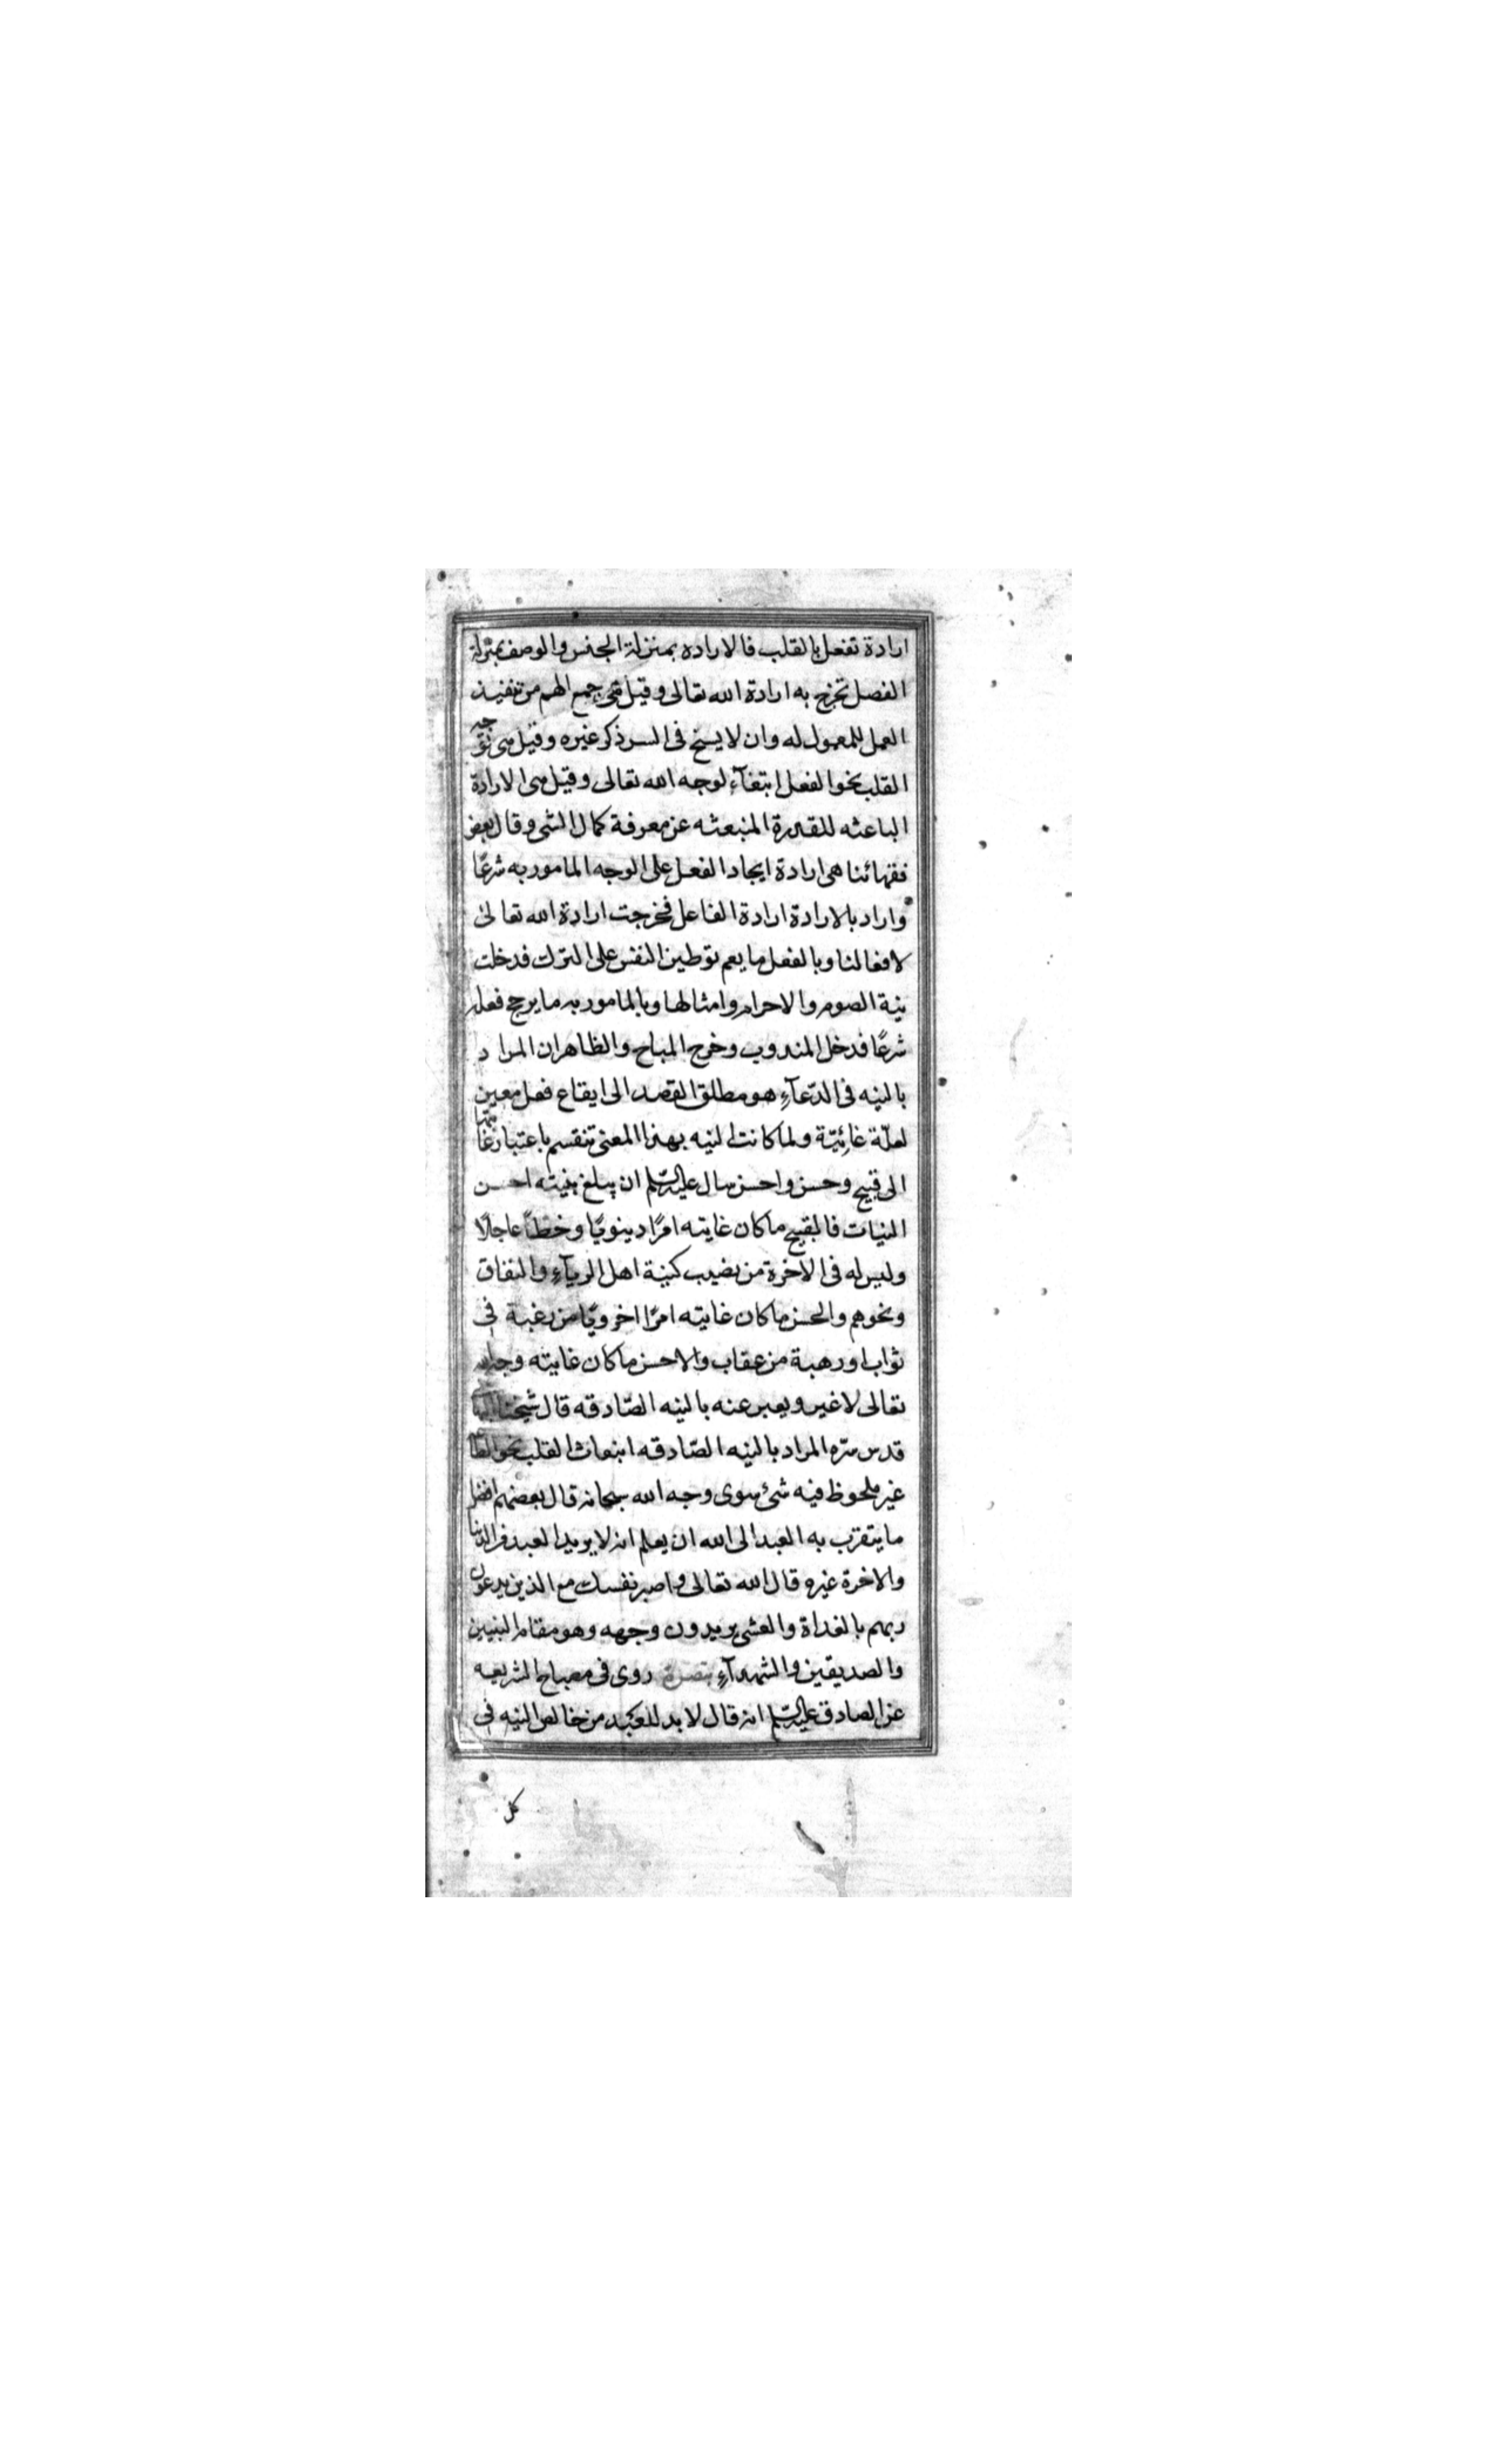 ارادة تفعل بالقلب فالاراده بمنزلة الجنس والوصف بمنزلة
الفصل تخرج به ارادة الله تعالى وقيل هى جمع الهم من تنفيذ
العمل للمعمول له وان لا يسنح فى السر ذكر غيره وقيل هى توجه
القلب نحو الفعل ابتغآء لوجه الله تعالى وقيل هى الارادة
الباعثه للقدرة المنبعثه عن معرفة كمال الشى وقال بعض
فقهائنا هى ارادة ايجاد الفعل على الوجه المامور به شرعًا
واراد بالارادة ارادة الفاعل فخرجت ارادة الله تعالى
لافعالنا وبالفعل ما يعم توطين النفس على الترك فدخلت
نية الصوم والاحرام وامثالها وبالمامور به ما يرجح فعله
شرعًا فدخل المندوب وخرج المباح والظاهر ان المراد
بالنيه فى الدّعآء هو مطلق القصد الى ايقاع فعل معين
لعلّة غائيّة ولما كانت النيه بهذا المعنى تنقسم باعتبار غايتها
الى قبيح وحسن واحسن سال عليه السّلم ان يبلغ بنيته احسن
النيات فالقبيح ما كان غايته امرًا دينويًا وحظاً عاجلًا
وليس له فى الاخرة من نصيب كنية اهل الريآء والنفاق
ونحوهم والحسن ما كان غايته امرًا اخرويًا من رغبة فى
ثواب او رهبة من عقاب والاحسن ما كان غايته وجه الله
تعالى لا غير ويعبر عنه بالنيه الصّادقه قال شيخنا
قدس سّره المراد بالنيه الصّادقه انبعاث القلب نحو
غير ملحوظ فيه شئ سوى وجه الله سبحانه قال بعضهم افضل
ما يتقرب به العبد الى الله ان يعلم انه لا يريد العبد فى الدنيا
والاخرة غيره قال الله تعالى واصبر نفسك مع الذين يدعون
ربهم بالغداة والعشى يريدون وجهه وهو مقام النبيين
والصديقين والشهدآء تبصرة روى فى مصباح الشريعه
عن الصادق عليه السّلم انه قال لا بد للعبد من خالص النيه فى
كل